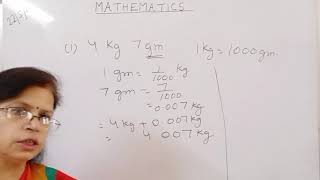 MATHEMATICS
(1) 4 kg 7 gm 1 kg = 1000 gm.
1 gm = 1/1000 kg
7 gm = 7/1000
= 0.007 kg
= 4 kg + 0.007 kg
= 4.007 kg